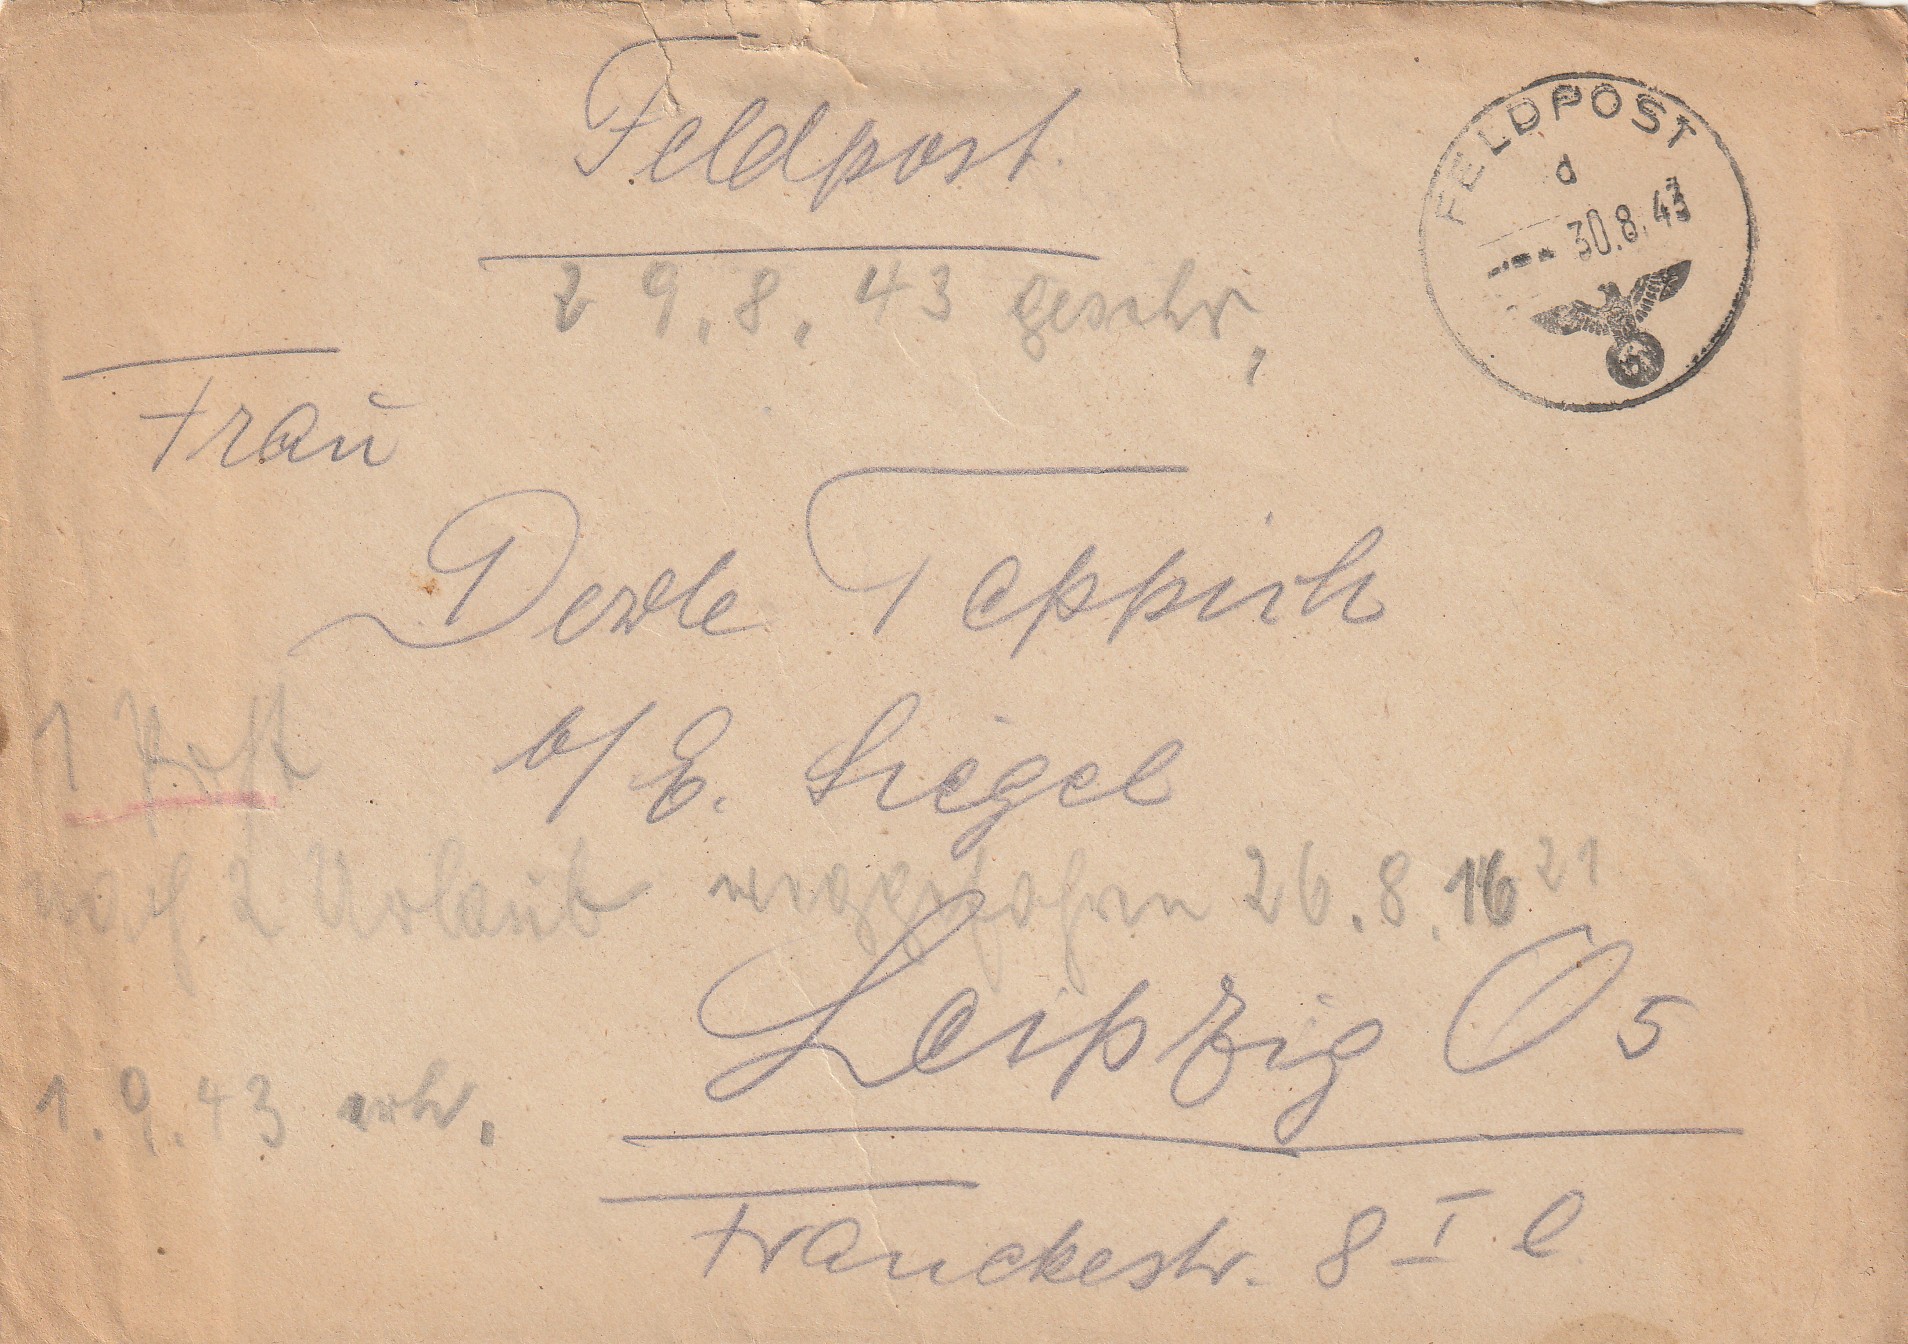 Feldpost.
FELDPOST
d
30.8.43
29.8.43 geschr.
Frau
Teppich
b/ E. Siegel
1 Post
nach 2. Urlaub weggefahren 26.8. 16 21
Leipzig O 5
1.9.43 erh.
Franckestr. 8 I. l